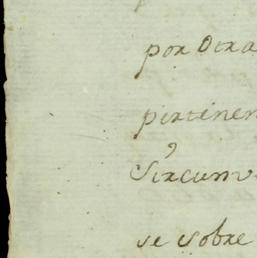 por otra
pertenen
Circunv
se sobre